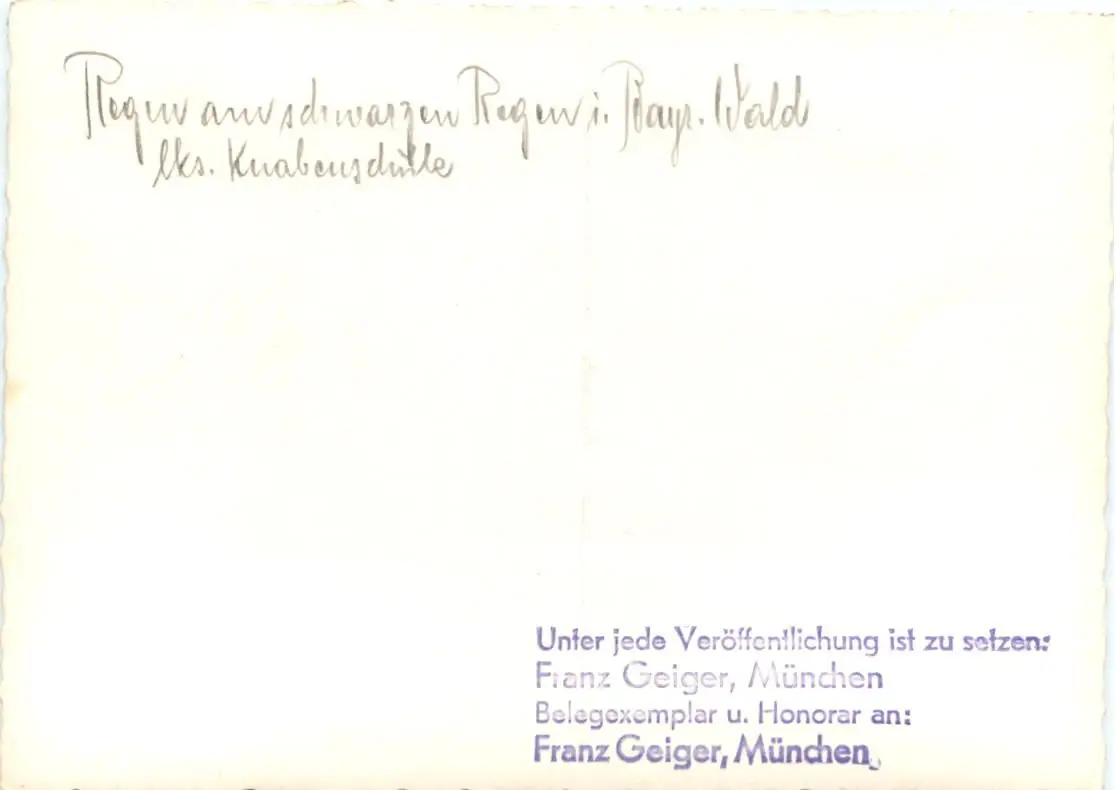 Regen am schwarzen Regen i. Bayr. Wald
lks. Knabenschule
Unter jede Veröffentlichung ist zu setzen:
Franz Geiger, München
Belegexemplar u. Honorar an:
Franz Geiger, München